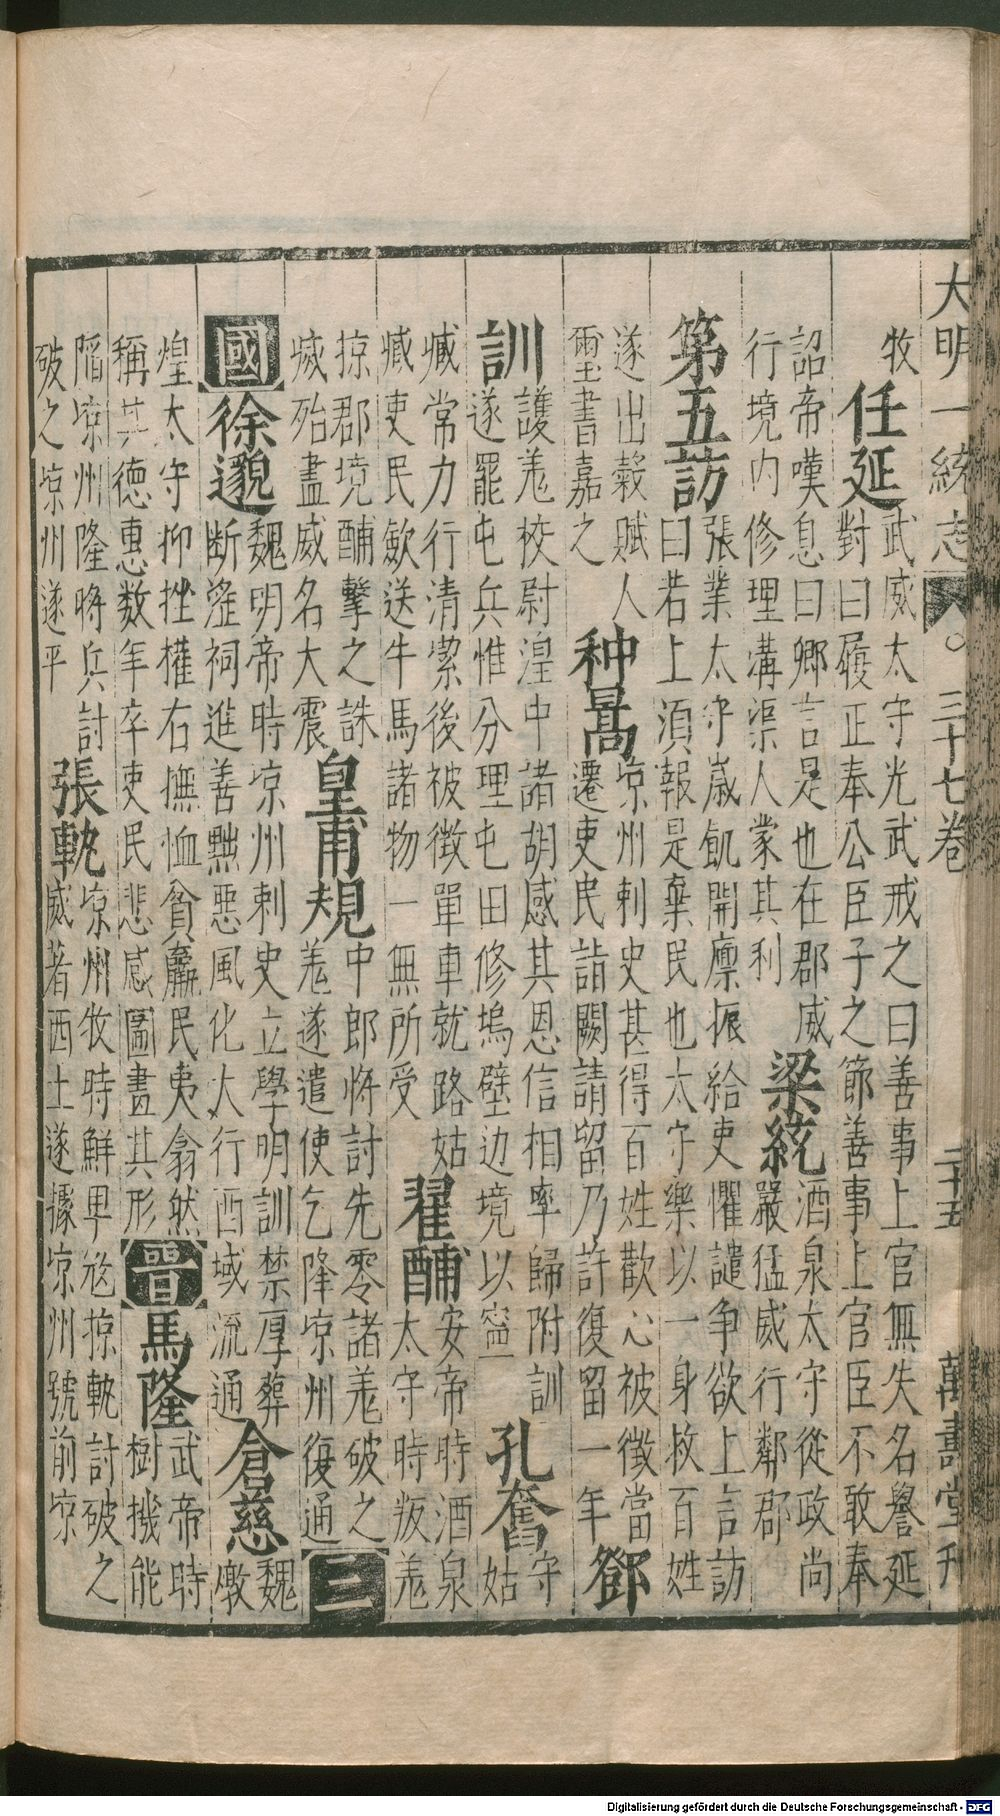 大明一統志 〇 三十七卷 二十五 萬壽堂刊
牧
任延
武威太守光武戒之曰善事上官無失名譽延
對曰履正奉公臣子之節善事上官臣不敢奉
詔帝嘆息曰卿言是也在郡威
行境内修理溝渠人蒙其利
梁統
酒泉太守從政尚
嚴猛威行鄰郡
第五訪
張業太守歲飢開廩振給吏懼譴争欲上言訪
曰若上須報是棄民也太守樂以一身救百姓
遂出穀賦人
璽書嘉之
种暠
凉州刺史甚得百姓歡心被徵當
遷吏民詣闕請留乃許復留一年
鄧
訓
護羌校尉湟中諸胡感其恩信相率歸附訓
遂罷屯兵惟分理屯田修塢壁边境以寍
孔奮
守
姑
臧常力行清潔後被徵單車就路姑
臧吏民歛送牛馬諸物一無所受
翟酺
安帝時酒泉
太守時叛羌
掠郡境酺擊之誅
㓕殆盡威名大震
皇甫規
中郎將討先零諸羌破之
羌遂遣使乞降凉州復通
三
國
徐邈
魏明帝時凉州刺史立學明訓禁厚葬
断滛祠進善黜惡風化大行西域流通
倉慈
魏
燉
煌太守抑挫權右撫恤貧羸民夷翕然
稱其德惠数年卒吏民悲感圖畫其形
晉
馬隆
武帝時
樹機能
陷凉州隆將兵討
破之凉州遂平
張軌
凉州牧時鮮卑寇掠軌討破之
威著西土遂據凉州號前凉
Digitalisierung gefördert durch die Deutsche Forschungsgemeinschaft - DFG